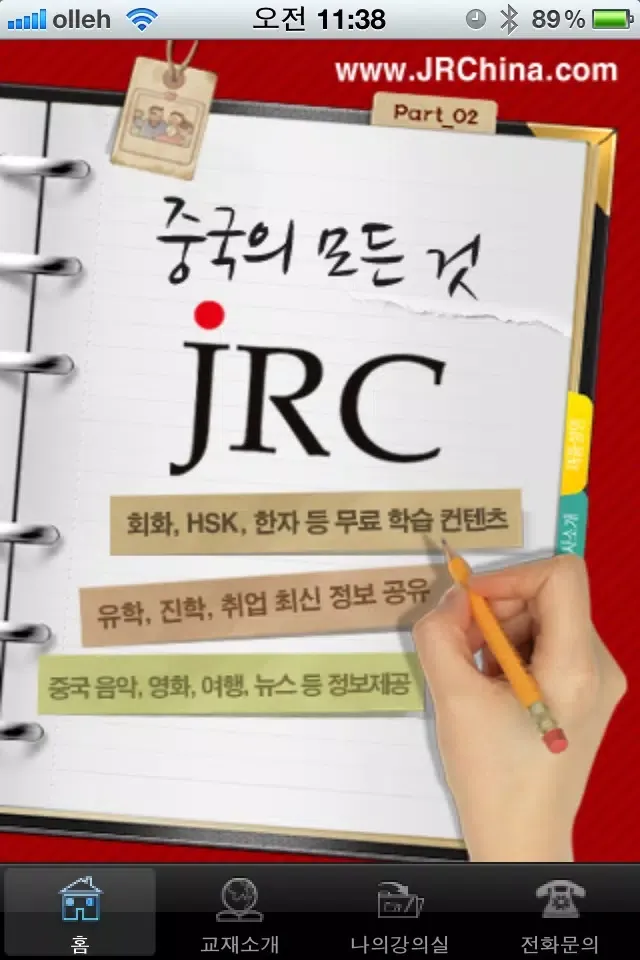 olleh 오전 11:38 89%
www.JRChina.com
Part_02
중국의 모든 것
JRC
회화, HSK, 한자 등 무료 학습 컨텐츠
유학, 진학, 취업 최신 정보 공유
중국 음악, 영화, 여행, 뉴스 등 정보제공
사소개
홈 교재소개 나의강의실 전화문의